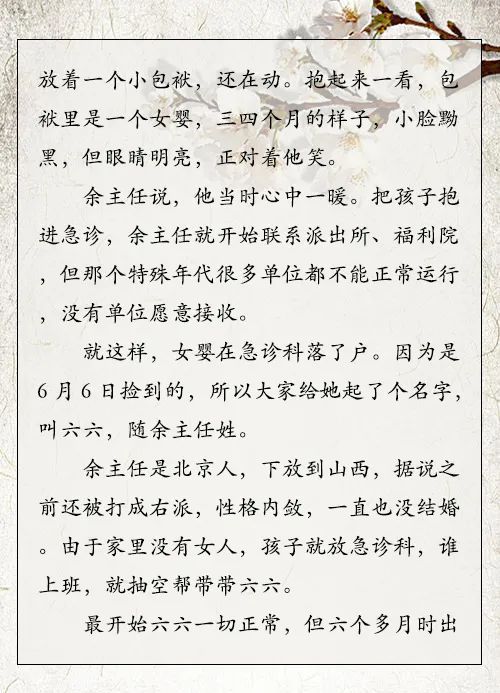 放着一个小包袱，还在动。抱起来一看，包
袱里是一个女婴，三四个月的样子，小脸黝
黑，但眼睛明亮，正对着他笑。
余主任说，他当时心中一暖。把孩子抱
进急诊，余主任就开始联系派出所、福利院
，但那个特殊年代很多单位都不能正常运行
，没有单位愿意接收。
就这样，女婴在急诊科落了户。因为是
6月6日捡到的，所以大家给她起了个名字，
叫六六，随余主任姓。
余主任是北京人，下放到山西，据说之
前还被打成右派，性格内敛，一直也没结婚
。由于家里没有女人，孩子就放急诊科，谁
上班，就抽空帮带带六六。
最开始六六一切正常，但六个多月时出